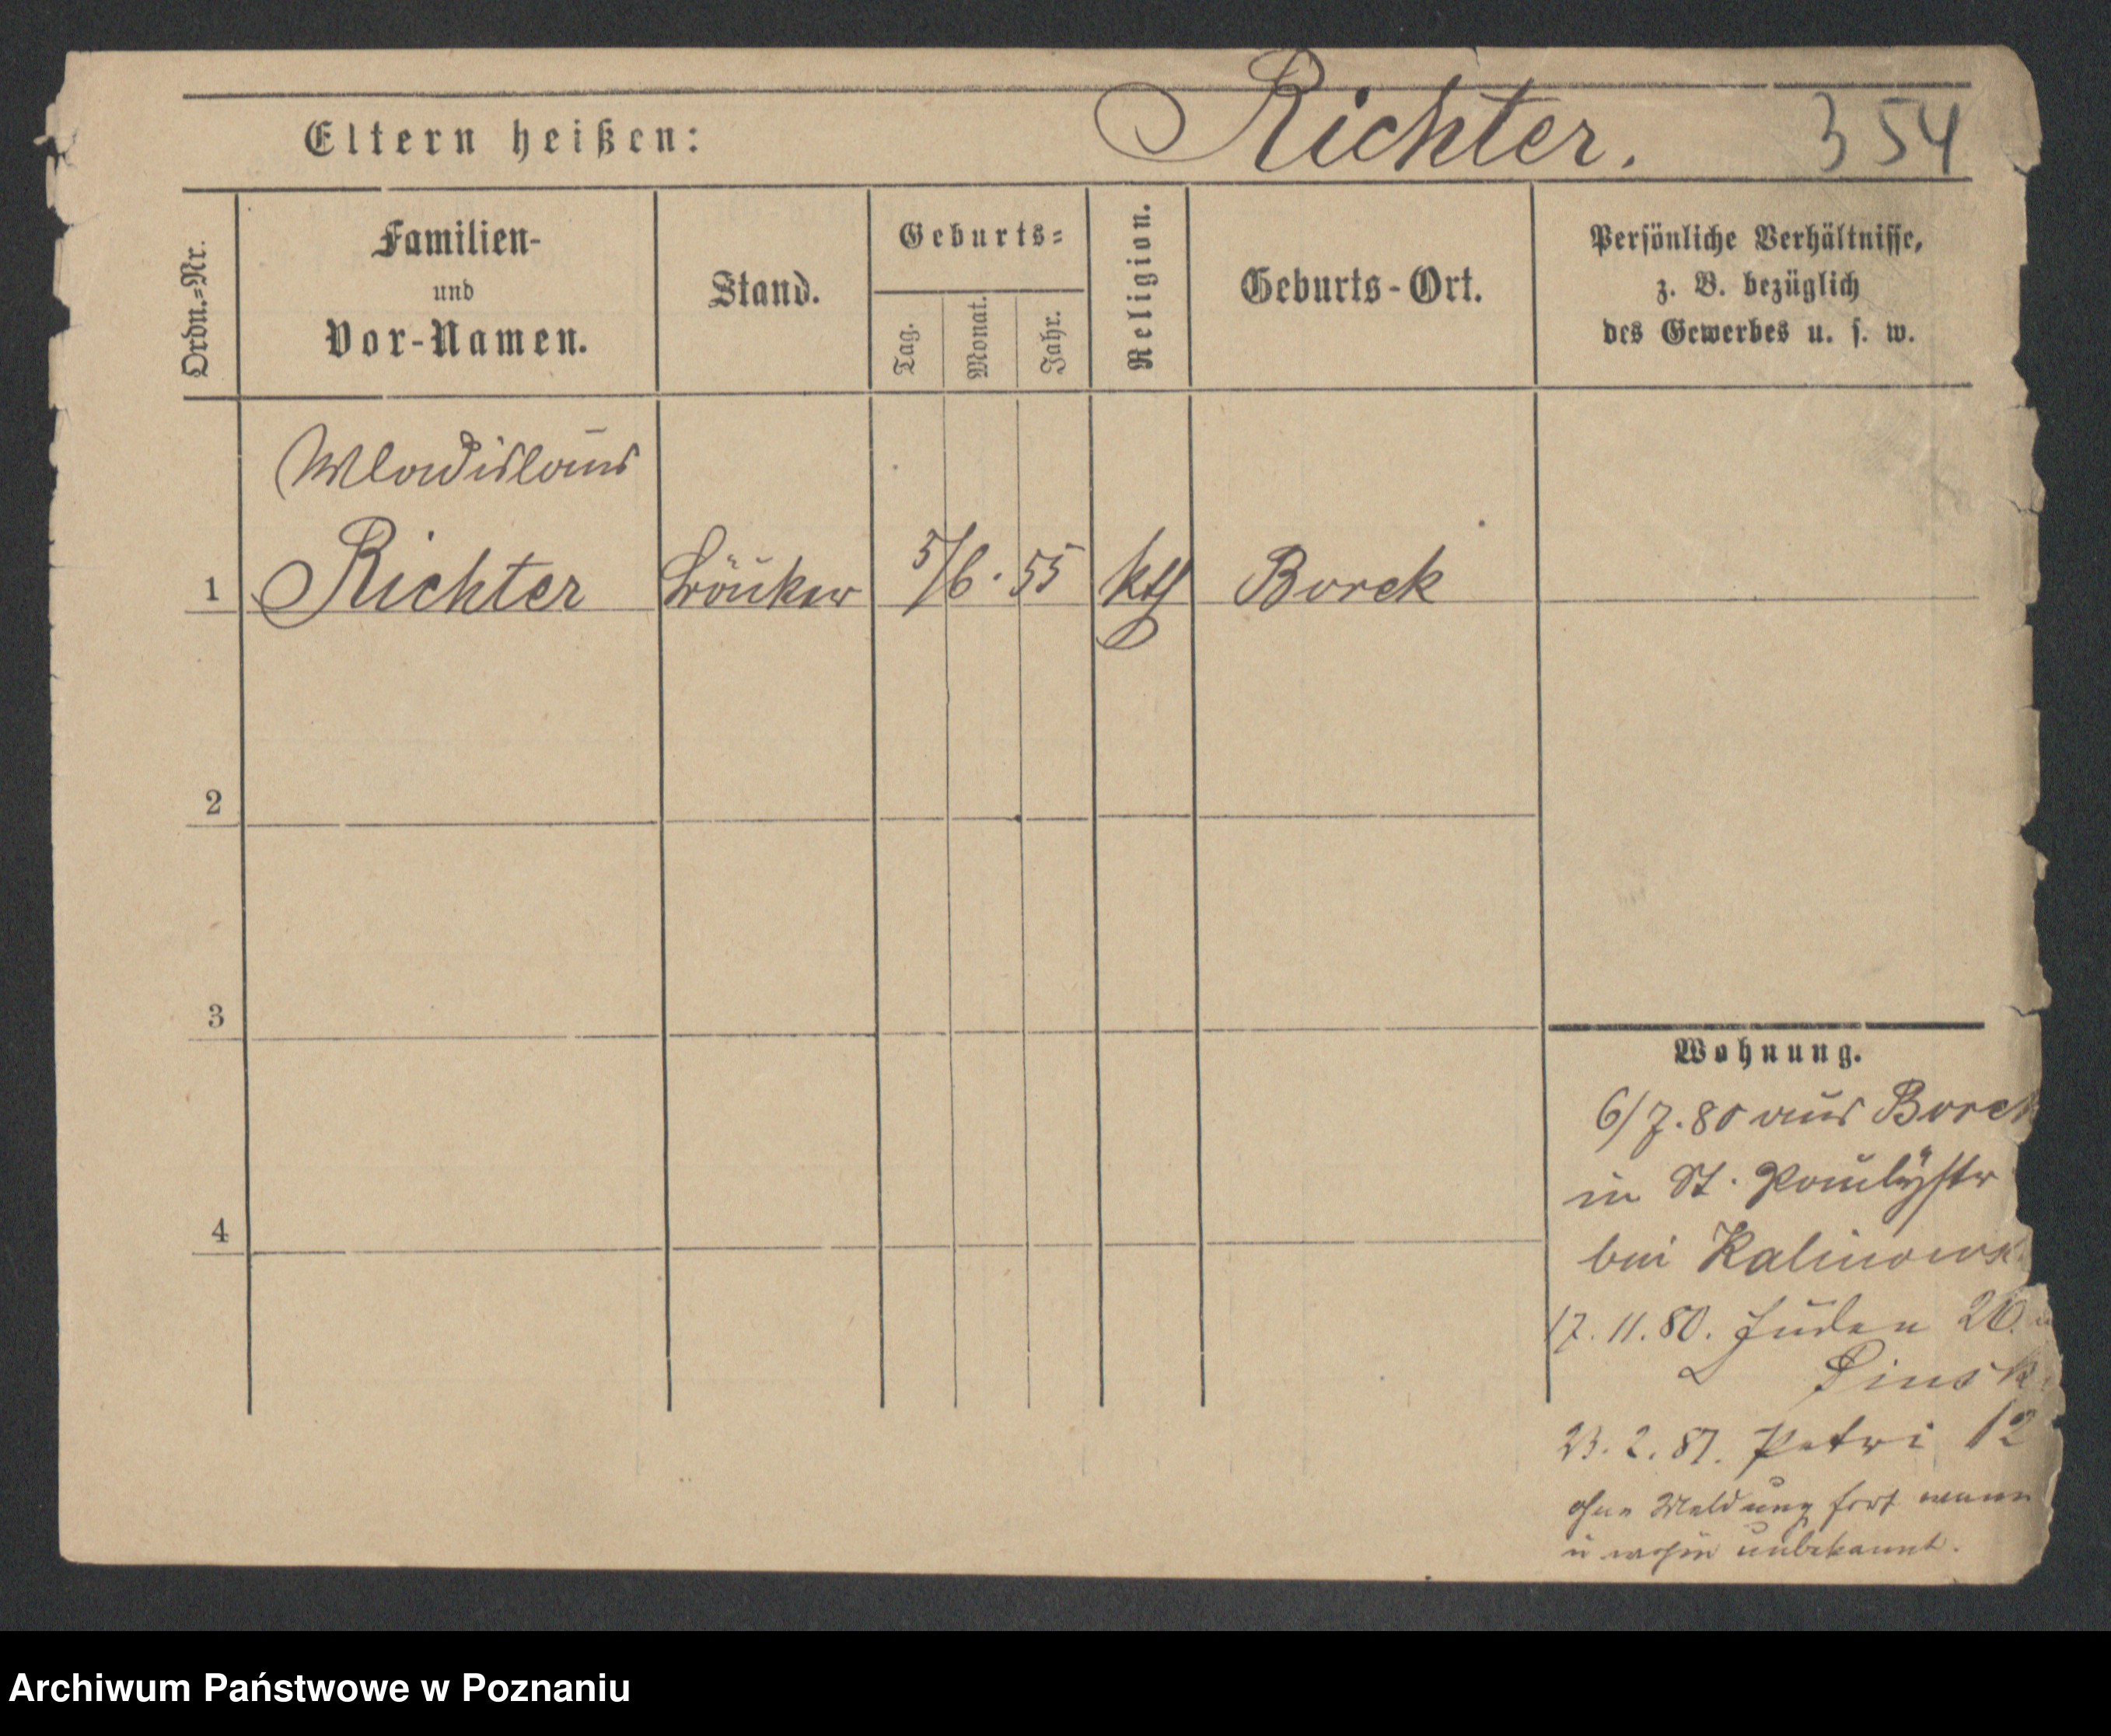 Richter.
354
Eltern heißen:
Ordn.=Nr.
Familien-
und
Vor-Namen.
Stand.
Geburts=
Tag.
Monat.
Jahr.
Religion.
Geburts-Ort.
Persönliche Verhältnisse,
z. B. bezüglich
des Gewerbes u. s. w.
Wladislaus
1 Richter Bräuker 5/6. 55 kth Borek
2
3
4
Wohnung.
6/7. 80 aus Borek
in St. Paulystr
bei Kalinowsk
17. 11. 80. Juden 26.
Pinsk
23. 2. 81. Petri 12
ohne Meldung fort wann
u wohin unbekannt.
Archiwum Państwowe w Poznaniu